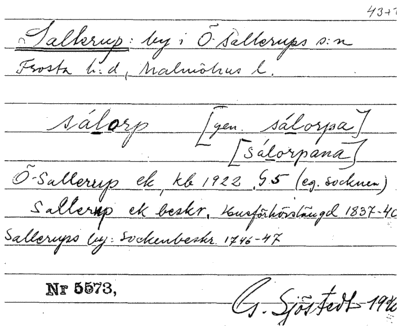 43+1
Sallerup: by i Ö. Sallerups s:n
Frosta h:d, Malmöhus l.
sálorp [gen. sálorpa]
[sálorpana]
Ö-Sallerup ek, kb 1922, §5 (eg. socknen)
Sallerup ek beskr. Husförhörslängd 1837-40
Sallerups by: Sockenbeskr. 1746-47
Nr 5573,
G. Sjöstedt